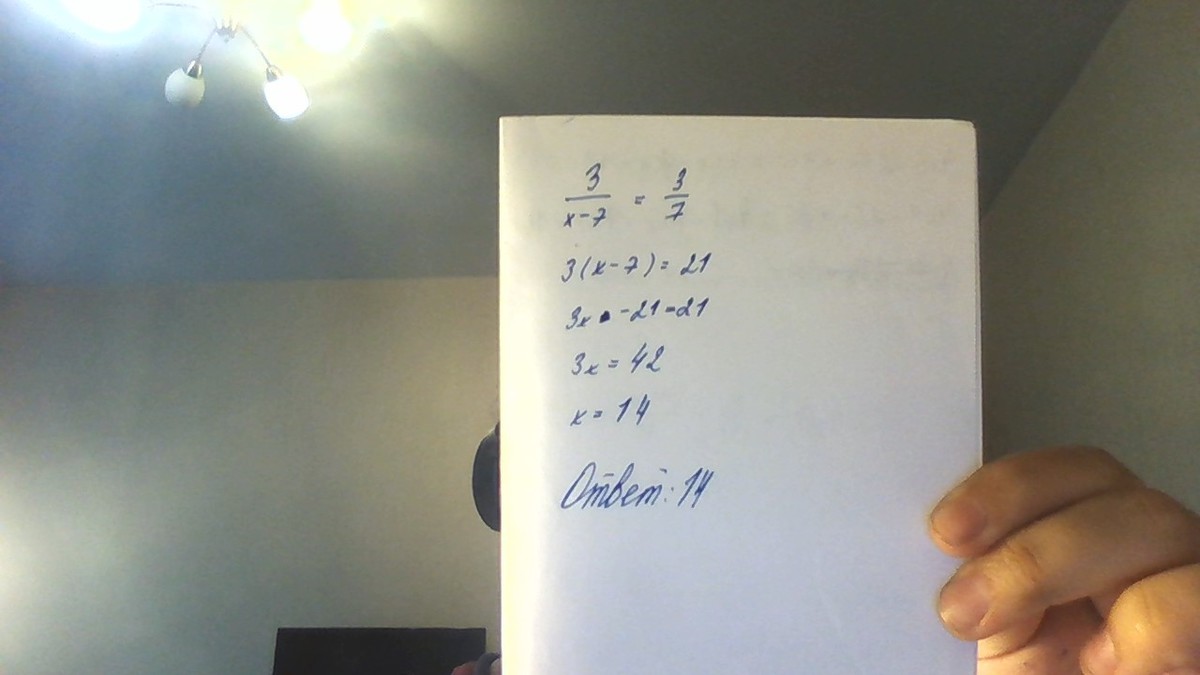 3/(x-7) = 3/7
3(x-7)=21
3x -21=21
3x=42
x=14
Ответ: 14